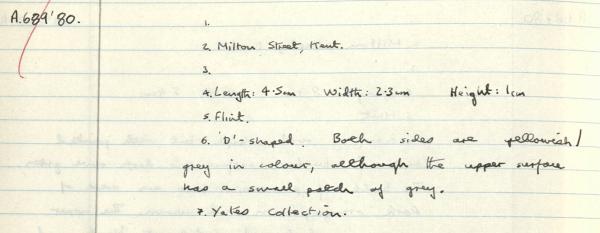 A.689'80.
1.
2. Milton Street, Kent.
3.
4. Length: 4.5cm Width: 2.3cm Height: 1cm
5. Flint.
6. 'D'-shaped. Both sides are yellowish/
grey in colour, although the upper surface
has a small patch of grey.
7. Yates Collection.